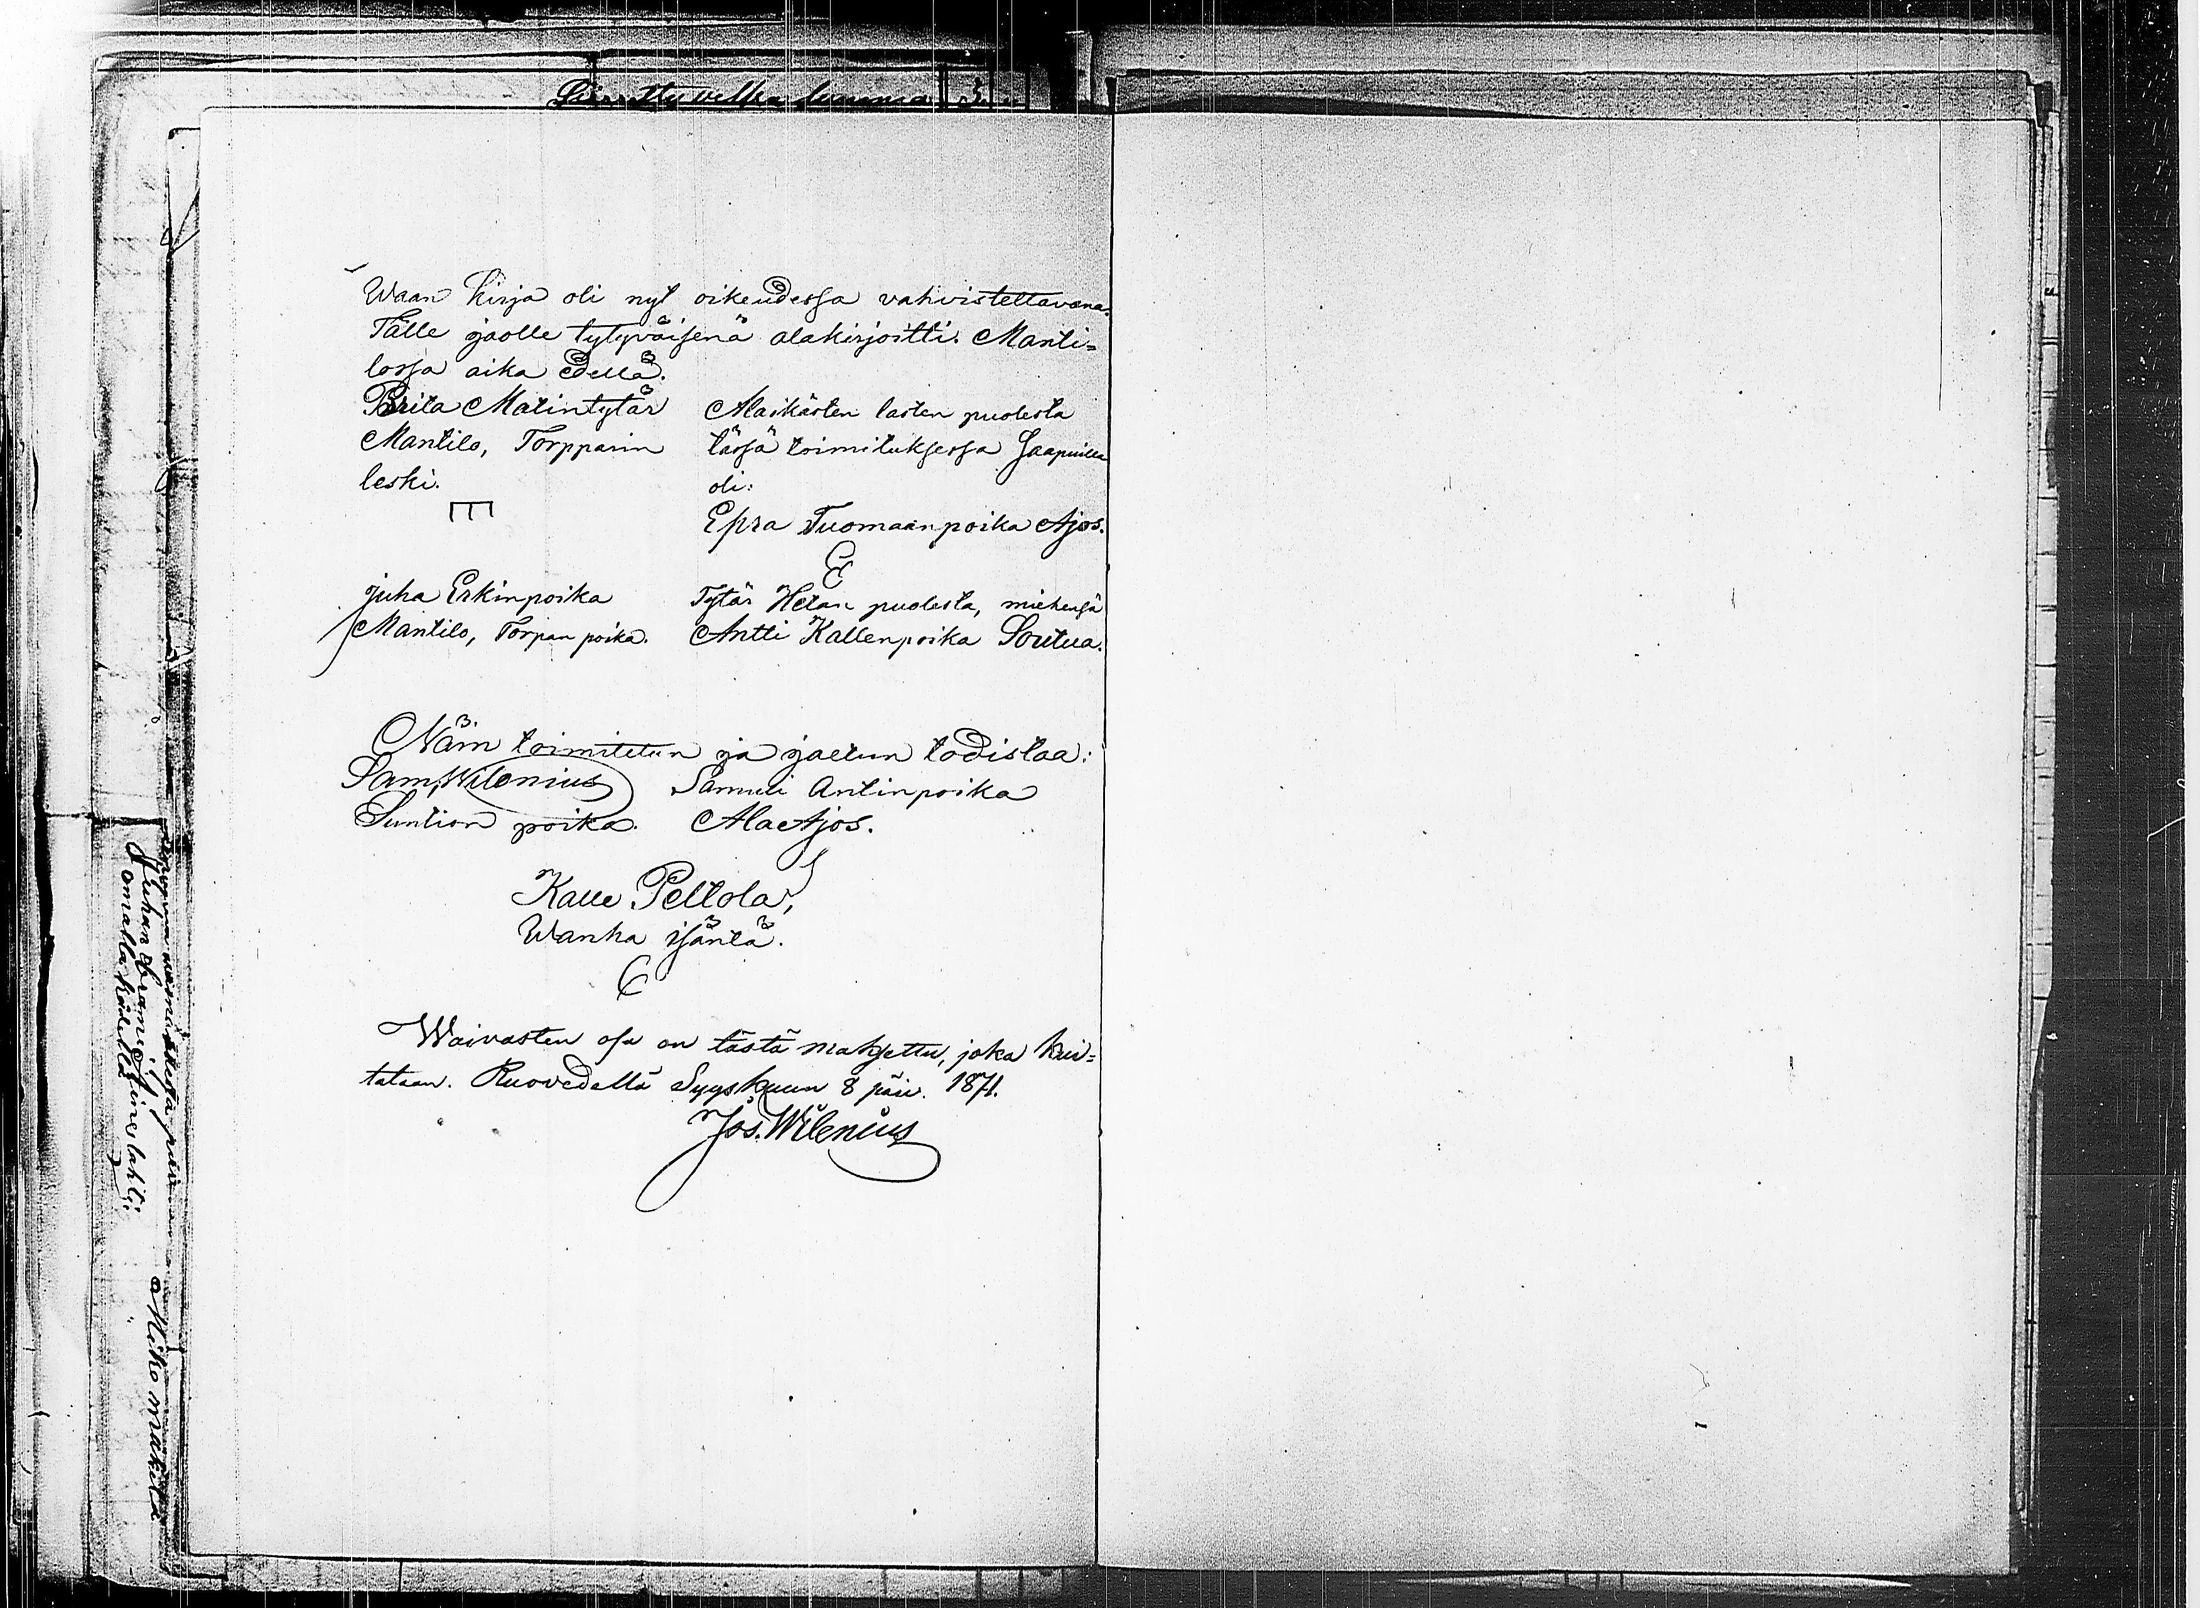 Siirrettu velka summa
Waan kirja oli nyt oikeudessa vahvistettavana.
Tälle jaolle tytyväisenä alakirjoitti. Manti=
lossa aika edellä.
Brita Matintytär
Mantilo, Torpparin
leski.
Alaikästen lasten puolesta
tässä toimituksessa saapuilla
oli:
Epra Tuomaanpoika Ajos.
E
Juha Erkinpoika
Mantilo, Torpan poika.
Tytär Hetan puolesta, miehensä
Antti Kallenpoika Soutua.
Näin toimitetun ja jaetun todistaa:
Sam, Wilenius
Suntion poika.
Samuli Antinpoika
Ala Ajos.
Kalle Peltola,
Wanha isäntä.
Waivasten osa on tästä maksettu, joka kui=
tataan. Ruovedellä Syyskuun 8 päiv. 1871.
Jos. Wilenius
Juhan
omalla kädellä
Miko